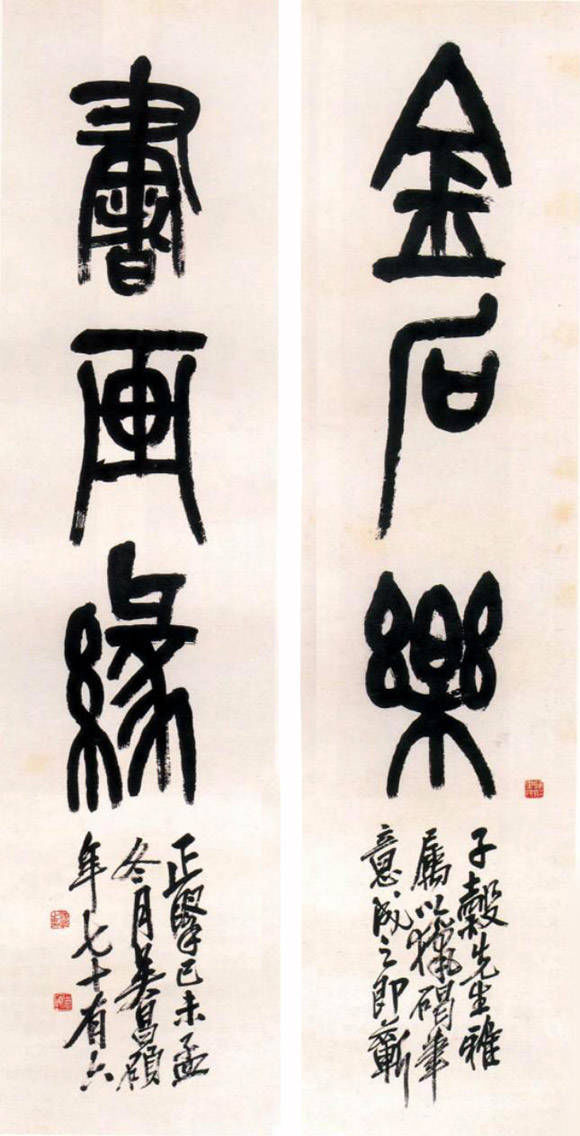 金石樂
子穀先生雅
屬以獵碣筆
意成之即蘄
書画緣
正己未孟
冬月吳昌碩
年七十有六